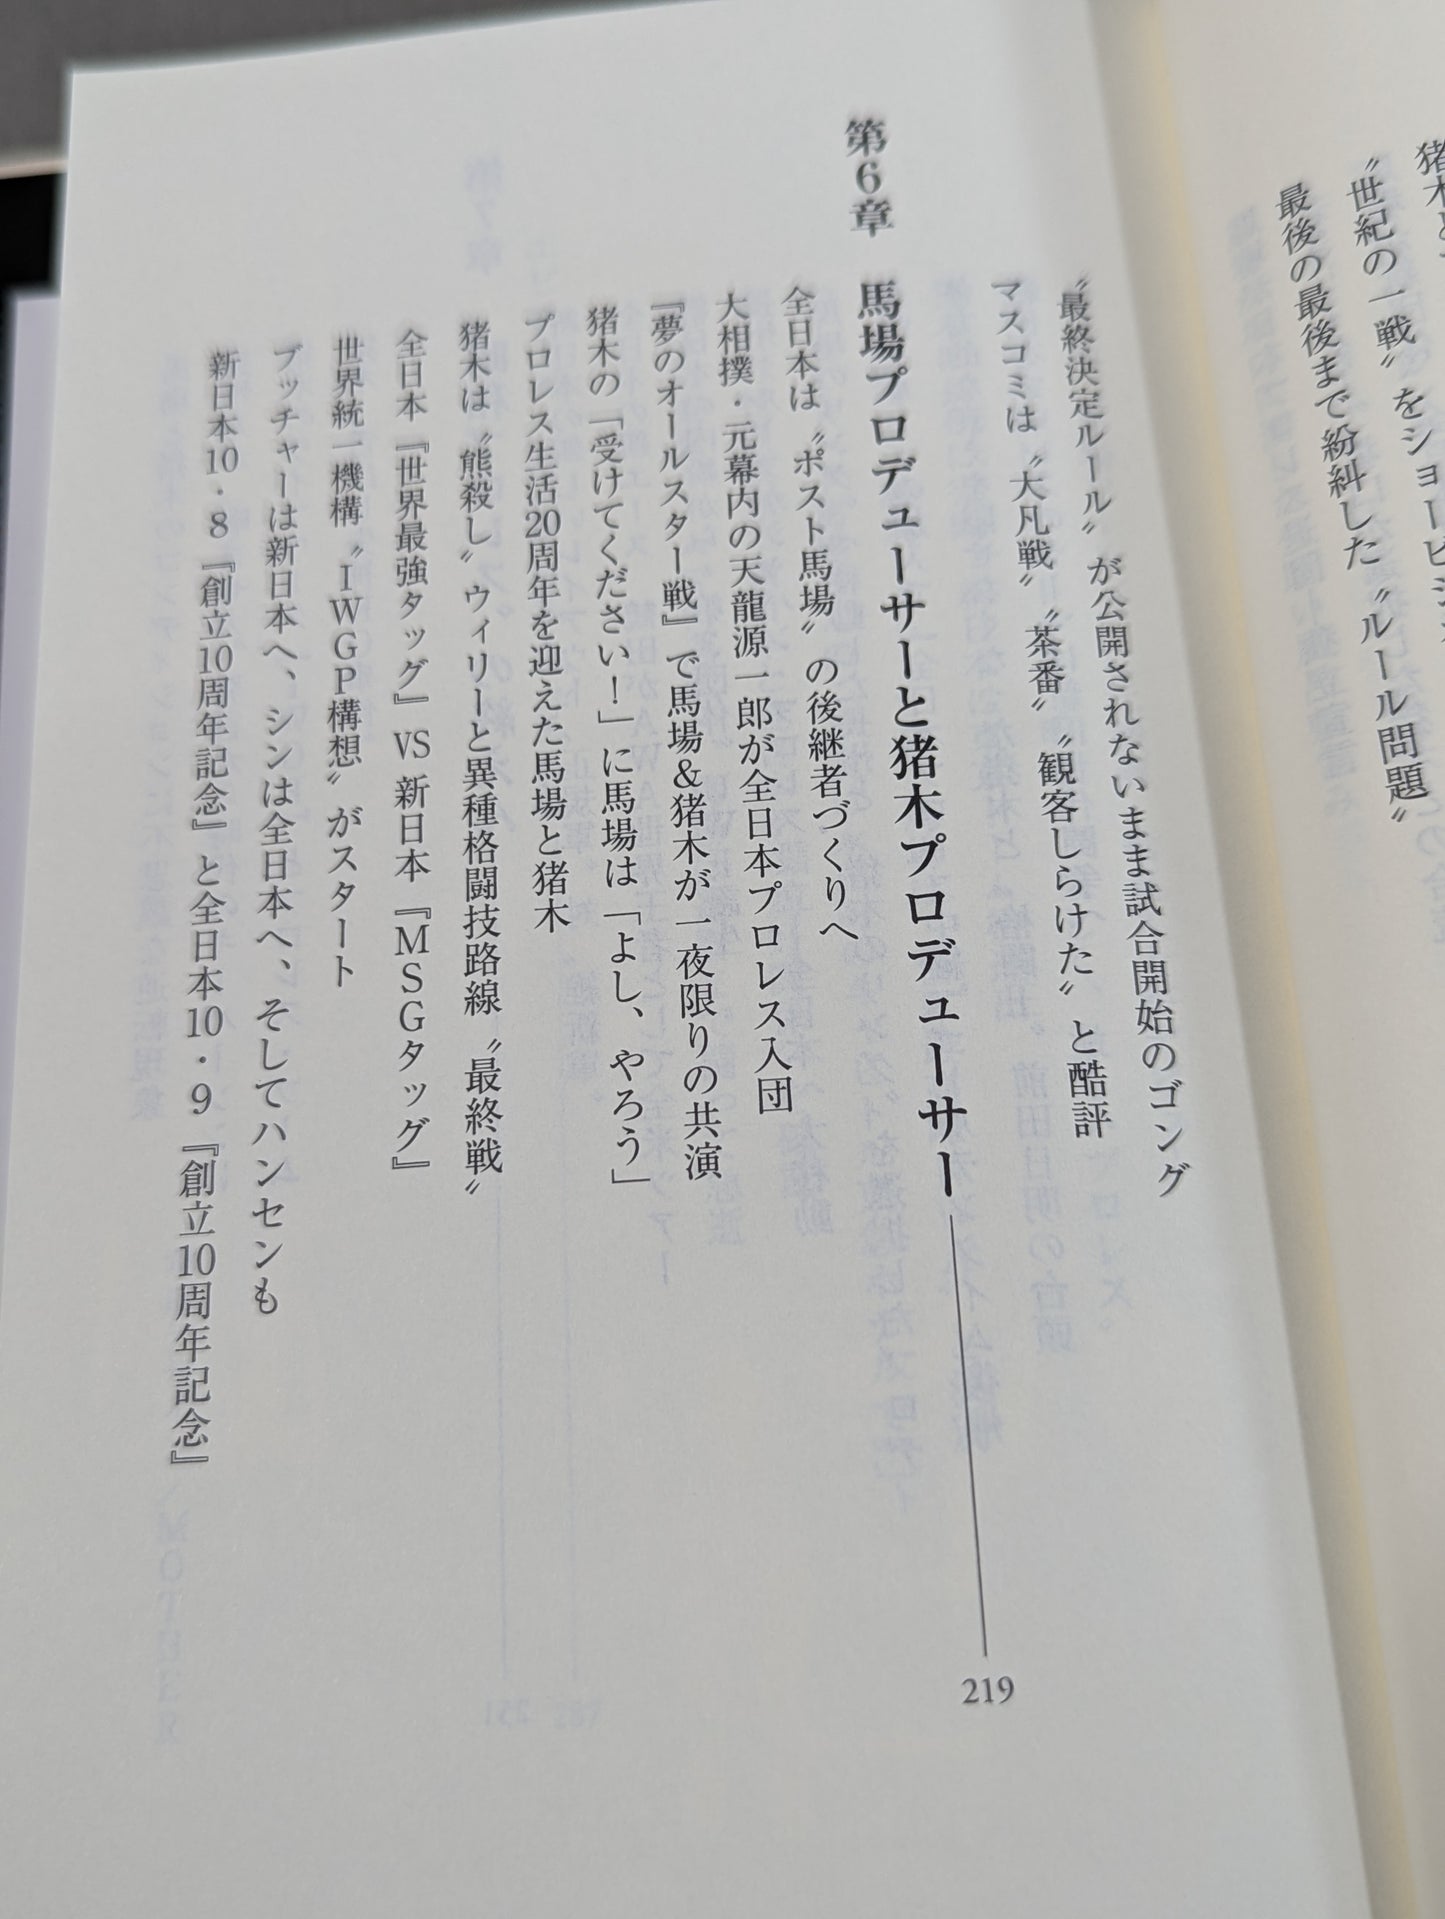 〝世紀の一戦〟をショービジ
最後の最後まで紛糾した〝ルール問題〟
〝最終決定ルール〟が公開されないまま試合開始のゴング
マスコミは〝大凡戦〟〝茶番〟〝観客しらけた〟と酷評
第6章 馬場プロデューサーと猪木プロデューサー 219
全日本は〝ポスト馬場〟の後継者づくりへ
大相撲・元幕内の天龍源一郎が全日本プロレス入団
『夢のオールスター戦』で馬場&猪木が一夜限りの共演
猪木の「受けてください!」に馬場は「よし、やろう」
プロレス生活20周年を迎えた馬場と猪木
猪木は〝熊殺し〟ウィリーと異種格闘技路線〝最終戦〟
全日本『世界最強タッグ』VS新日本『MSGタッグ』
世界統一機構〝IWGP構想〟がスタート
ブッチャーは新日本へ、シンは全日本へ、そしてハンセンも
新日本10・8『創立10周年記念』と全日本10・9『創立10周年記念』